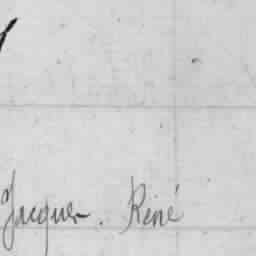 Jacques. René